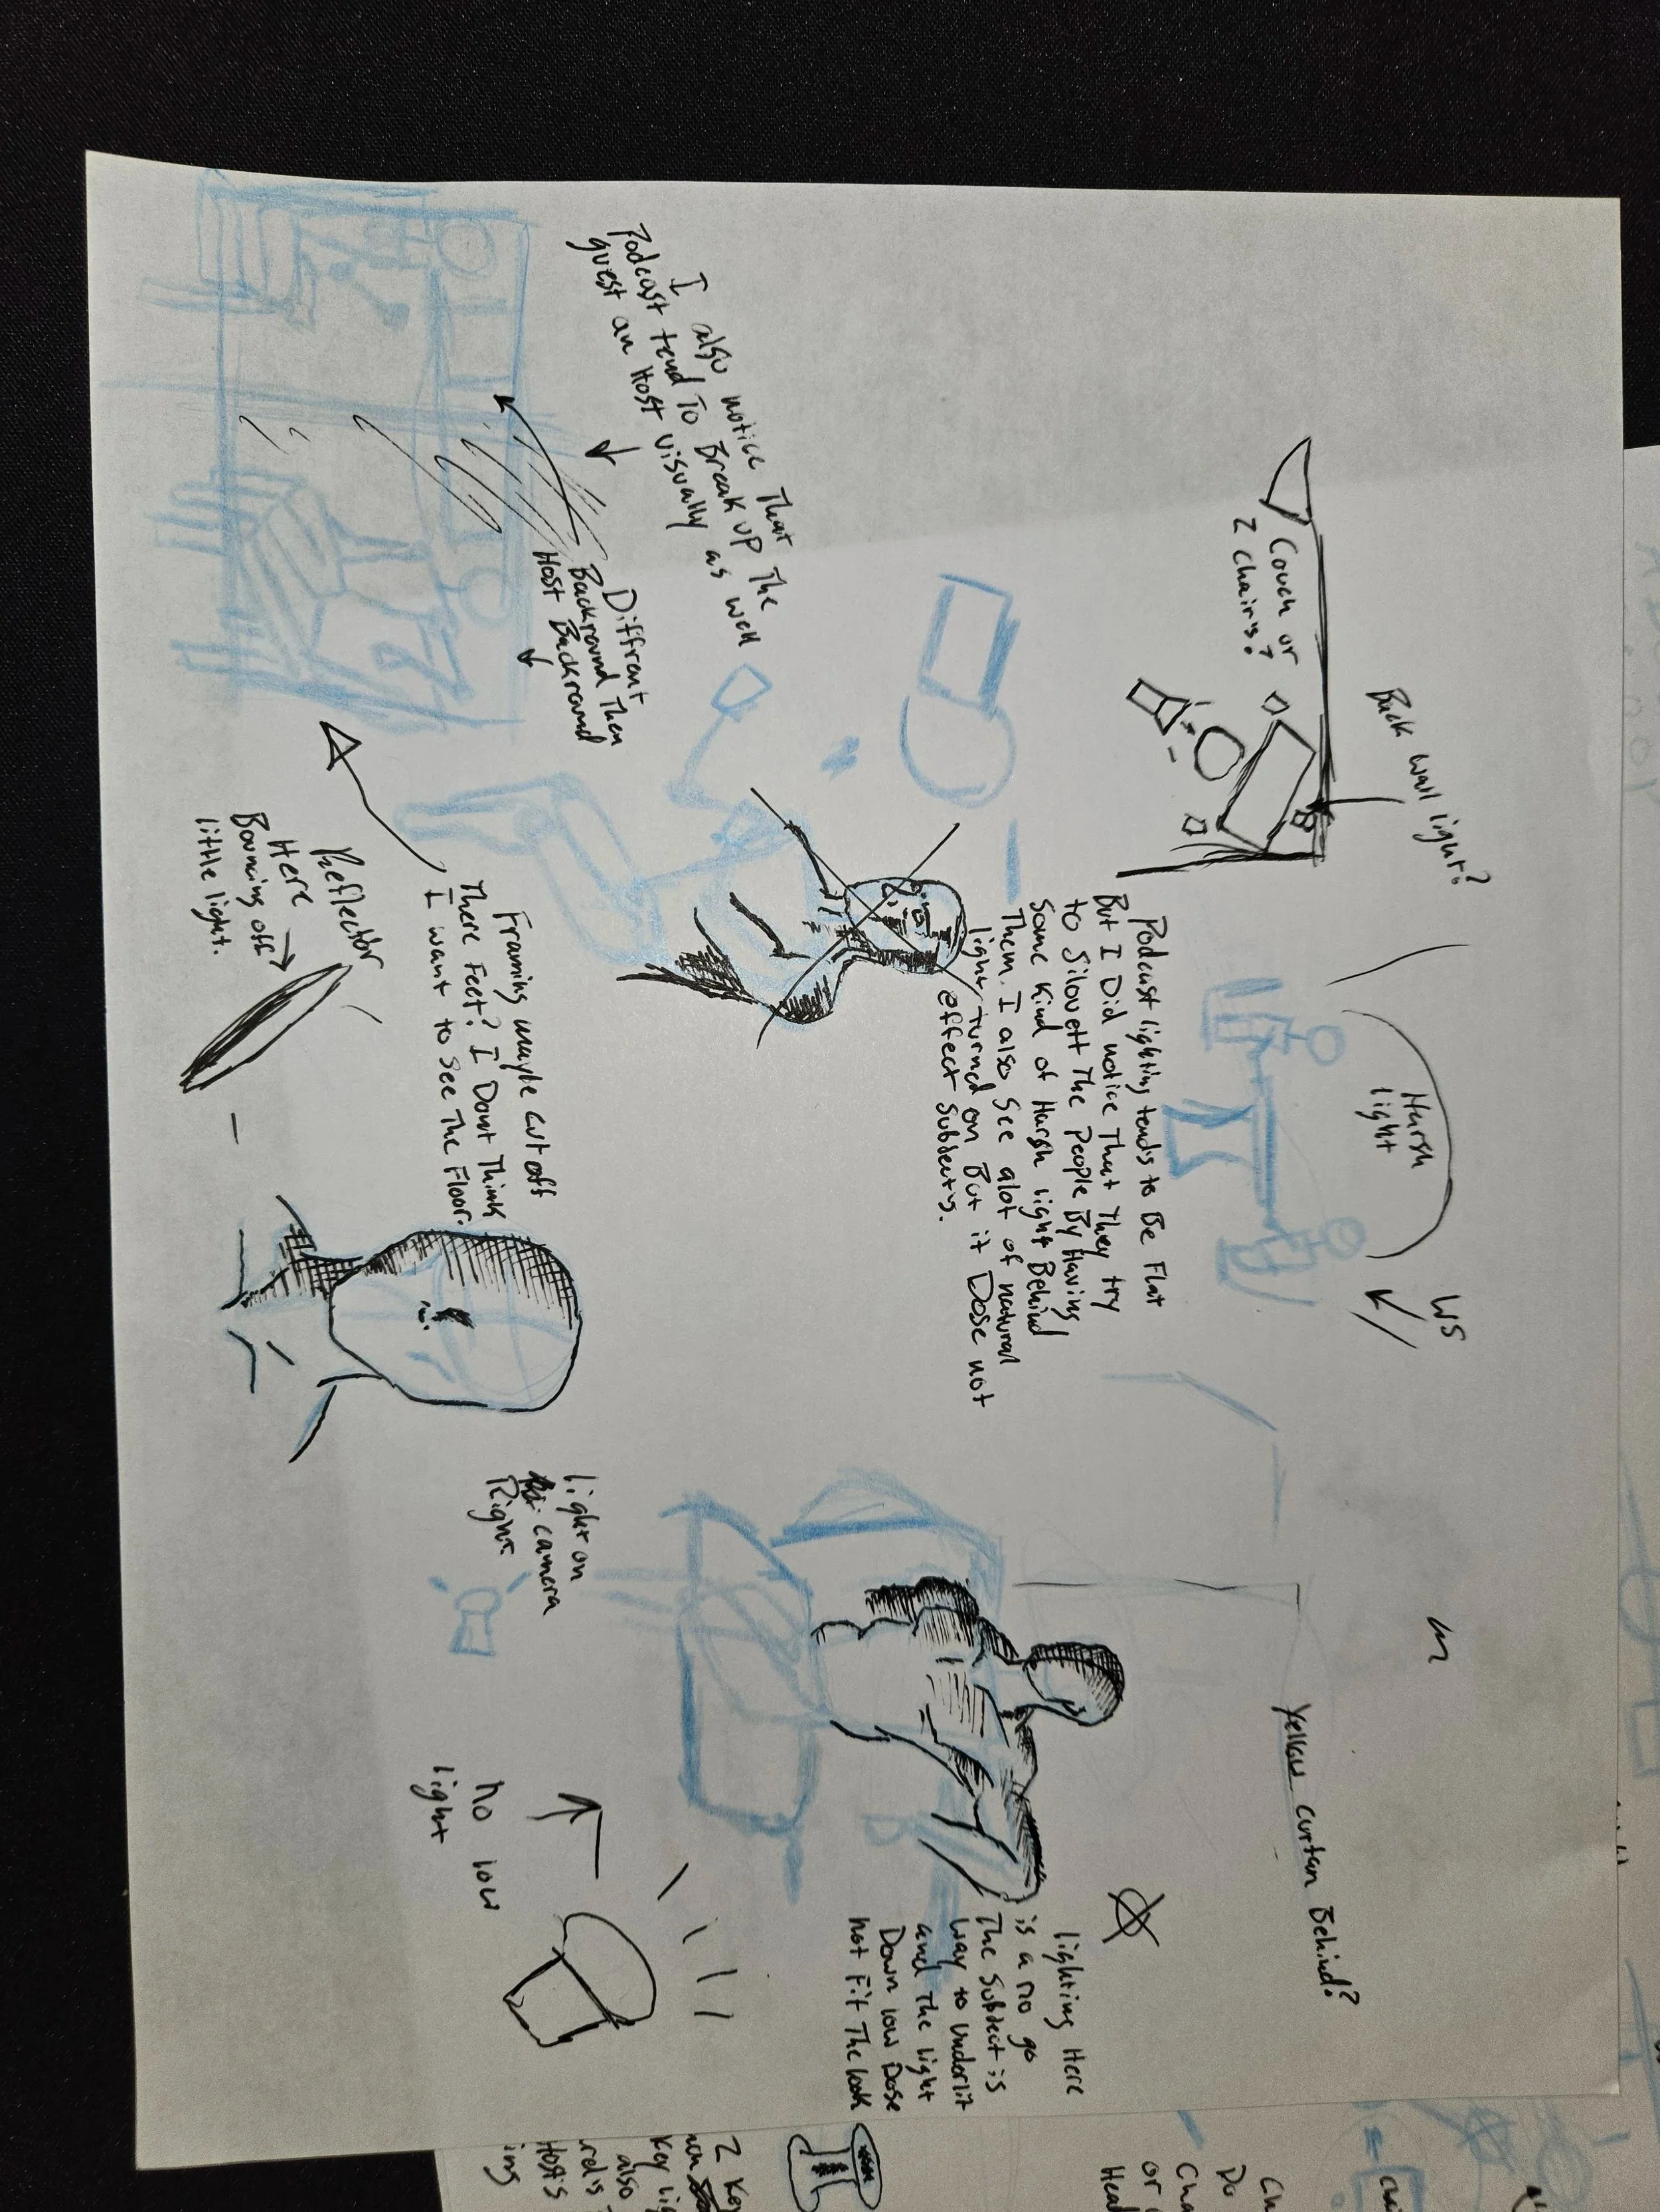 Back wall light?
Couch or
2 chairs?
Harsh
light
WS
Yellow curtan Behind?
Podcast lighting tends to Be Flat
But I Did notice That They try
to Silouett The People By Having
Some Kind of Harsh light Behind
Them. I also See alot of natural
light turned on But it Dose not
effect Subects.
lighting Here
is a no go
The Subect is
way to underlit
and The light
Down low Dose
not Fit The look
I also notice That
Podcast tend To Break up The
guest an Host visually as well
Diffrent
Backround Then
Host Backround
Framing maybe cut off
There Feet? I Dont Think
I want to see The Floor.
Reflector
Here
Bouncing off
little light.
light on
camera
Right
no low
light
2 Key
Key lig
also
Host's
ing
Ch
Do
Cha
or
Head